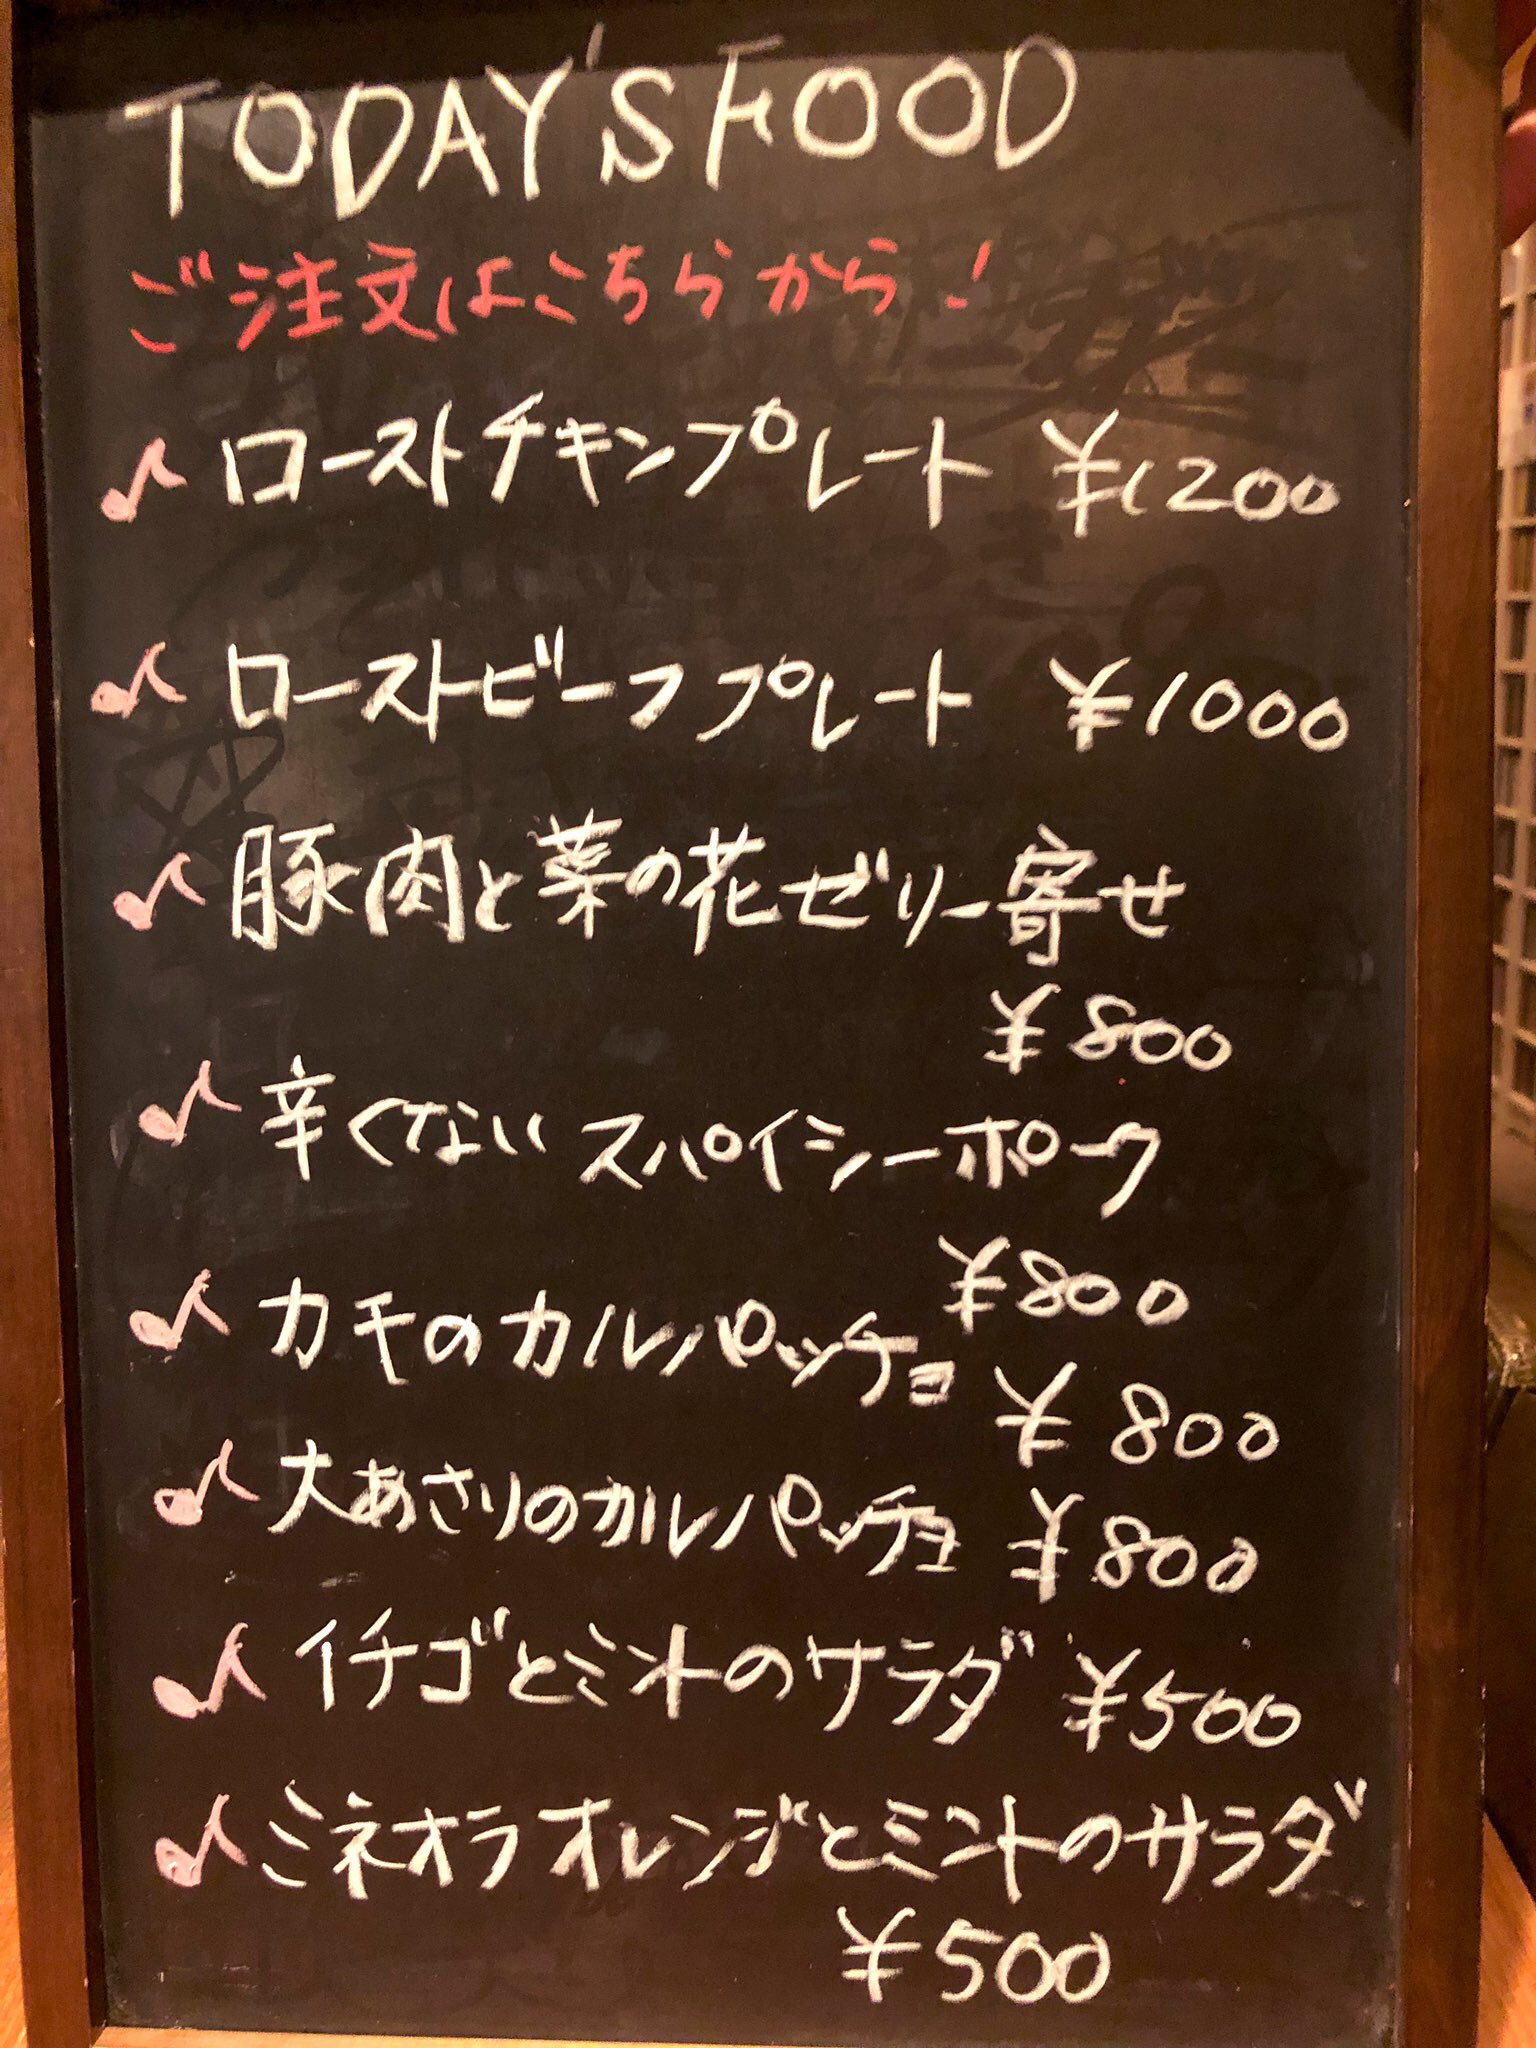 TODAY'S FOOD
ご注文はこちらから!
ローストチキンプレート ¥1200
ローストビーフプレート ¥1000
豚肉と菜の花ゼリー寄せ
¥800
辛くないスパイシーポーク
¥800
カモのカルパッチョ ¥800
大あさりのカルパッチョ ¥800
イチゴとミントのサラダ ¥500
ミネオラオレンジとミントのサラダ
¥500